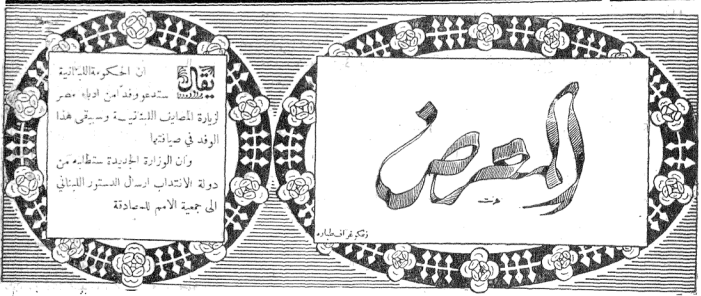 المعرض
زنكوغراف طباره
يقال ان الحكومة اللبنانية
ستدعو وفداً من ادباء مصر
لزيارة المصايف اللبنانية وسيبقى هذا
الوفد في ضيافتها
وان الوزارة الجديدة ستطلب من
دولة الانتداب ارسال الدستور اللبناني
الى جمعية الامم للمصادقة